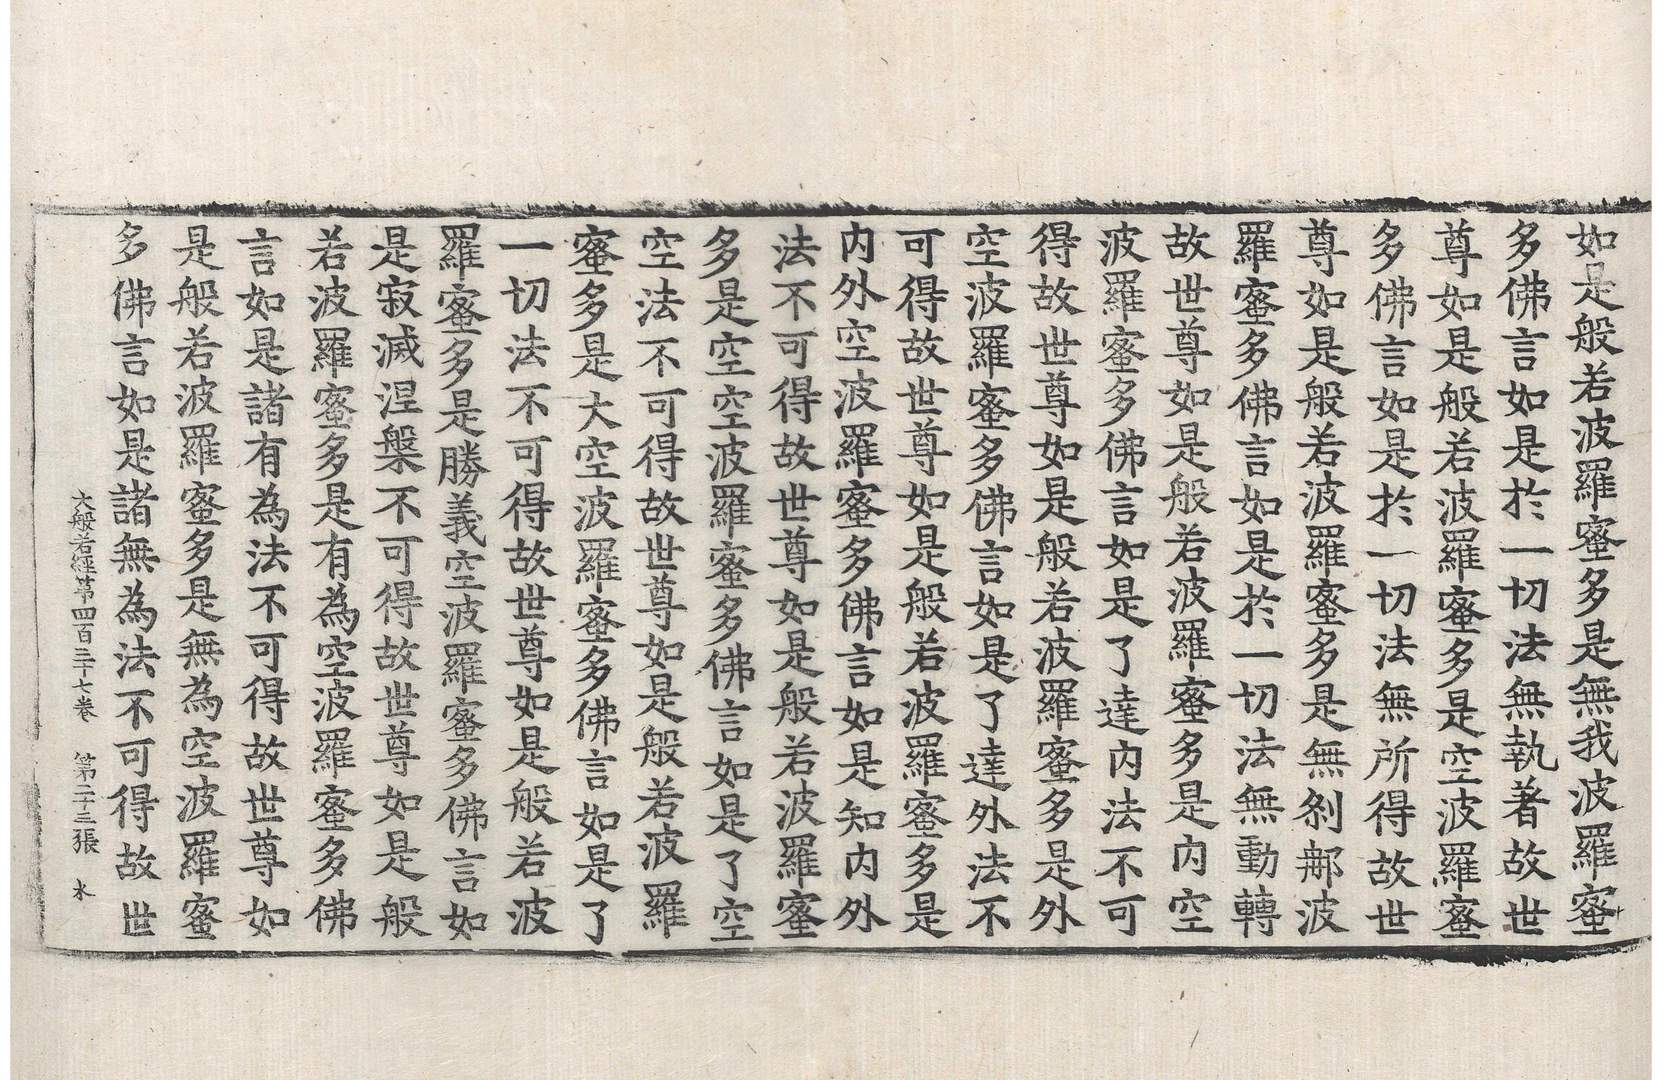 如是般若波羅蜜多是無我波羅蜜
多佛言如是於一切法無執著故世
尊如是般若波羅蜜多是空波羅蜜
多佛言如是於一切法無所得故世
尊如是般若波羅蜜多是無剎那波
羅蜜多佛言如是於一切法無動轉
故世尊如是般若波羅蜜多是內空
波羅蜜多佛言如是了達內法不可
得故世尊如是般若波羅蜜多是外
空波羅蜜多佛言如是了達外法不
可得故世尊如是般若波羅蜜多是
內外空波羅蜜多佛言如是知內外
法不可得故世尊如是般若波羅蜜
多是空空波羅蜜多佛言如是了空
空法不可得故世尊如是般若波羅
蜜多是大空波羅蜜多佛言如是了
一切法不可得故世尊如是般若波
羅蜜多是勝義空波羅蜜多佛言如
是寂滅涅槃不可得故世尊如是般
若波羅蜜多是有為空波羅蜜多佛
言如是諸有為法不可得故世尊如
是般若波羅蜜多是無為空波羅蜜
多佛言如是諸無為法不可得故世
大般若經第四百三十七卷 第二十三張 水